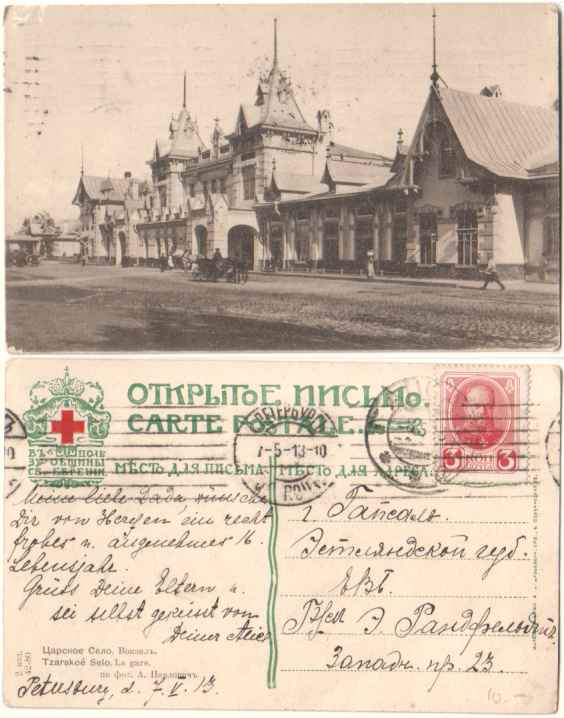 ОТКРЫТОЕ ПИСЬМО.
CARTE POSTALE.
ВЪ ПОЛЬЗУ ОБЩИНЫ СВ. ЕВГЕНІИ.
МѢСТО ДЛЯ ПИСЬМА
МѢСТО ДЛЯ АДРЕСА
7-5-13-10
3 3
Meine liebe Dada, wünsche
Dir von Herzen, ein recht
frohes u. angenehmes 16.
Lebensjahr.
Grüss Deine Eltern u.
sei selbst geküsst von
Deiner
г. Гапсаль.
Эстляндской губ.
Э. Рандфельдтъ
Западн. пр. 23.
Царское Село. Вокзалъ.
Tzarskoé Selo. La gare.
по фот. А. Павловичъ.
Petersburg, d. 7. V. 13.